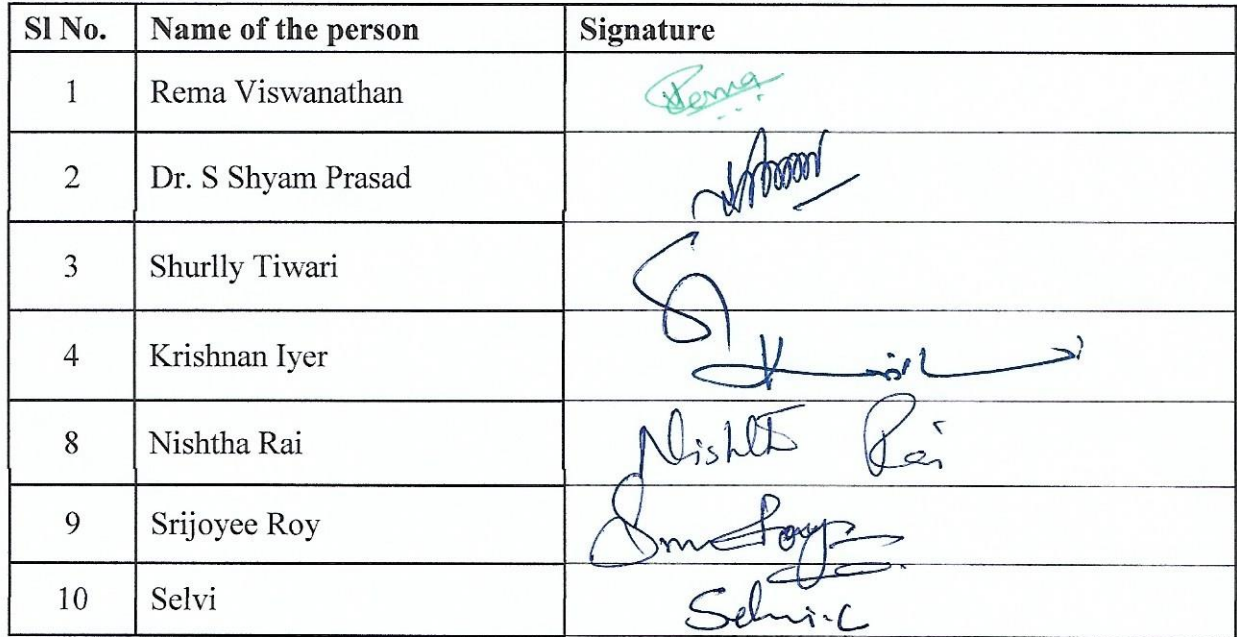 Sl No. Name of the person Signature
1 Rema Viswanathan Rema
2 Dr. S Shyam Prasad
3 Shurlly Tiwari
4 Krishnan Iyer
8 Nishtha Rai Nishtha Rai
9 Srijoyee Roy
10 Selvi Selvi.C